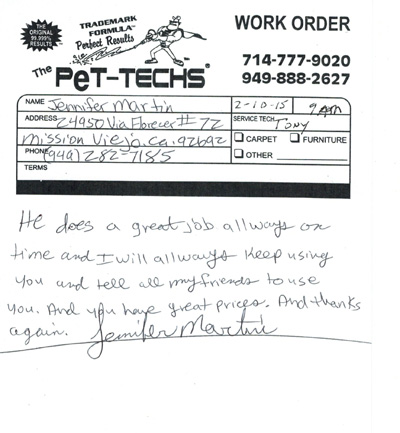 THE ORIGINAL 99.999% RESULTS
TRADEMARK FORMULA™
Perfect Results
The PeT-TECHS®
WORK ORDER
714-777-9020
949-888-2627
NAME Jennifer Martin 2-10-15 9 am
ADDRESS 24950 Via Florecer # 72 SERVICE TECH. TONY
Mission Viejo, Ca. 92692 CARPET FURNITURE
PHONE (949) 282-7185 OTHER
TERMS
He does a great job allways on
time and I will allways keep using
you and tell all my friends to use
you. And you have great prices. And thanks
again. Jennifer Martin